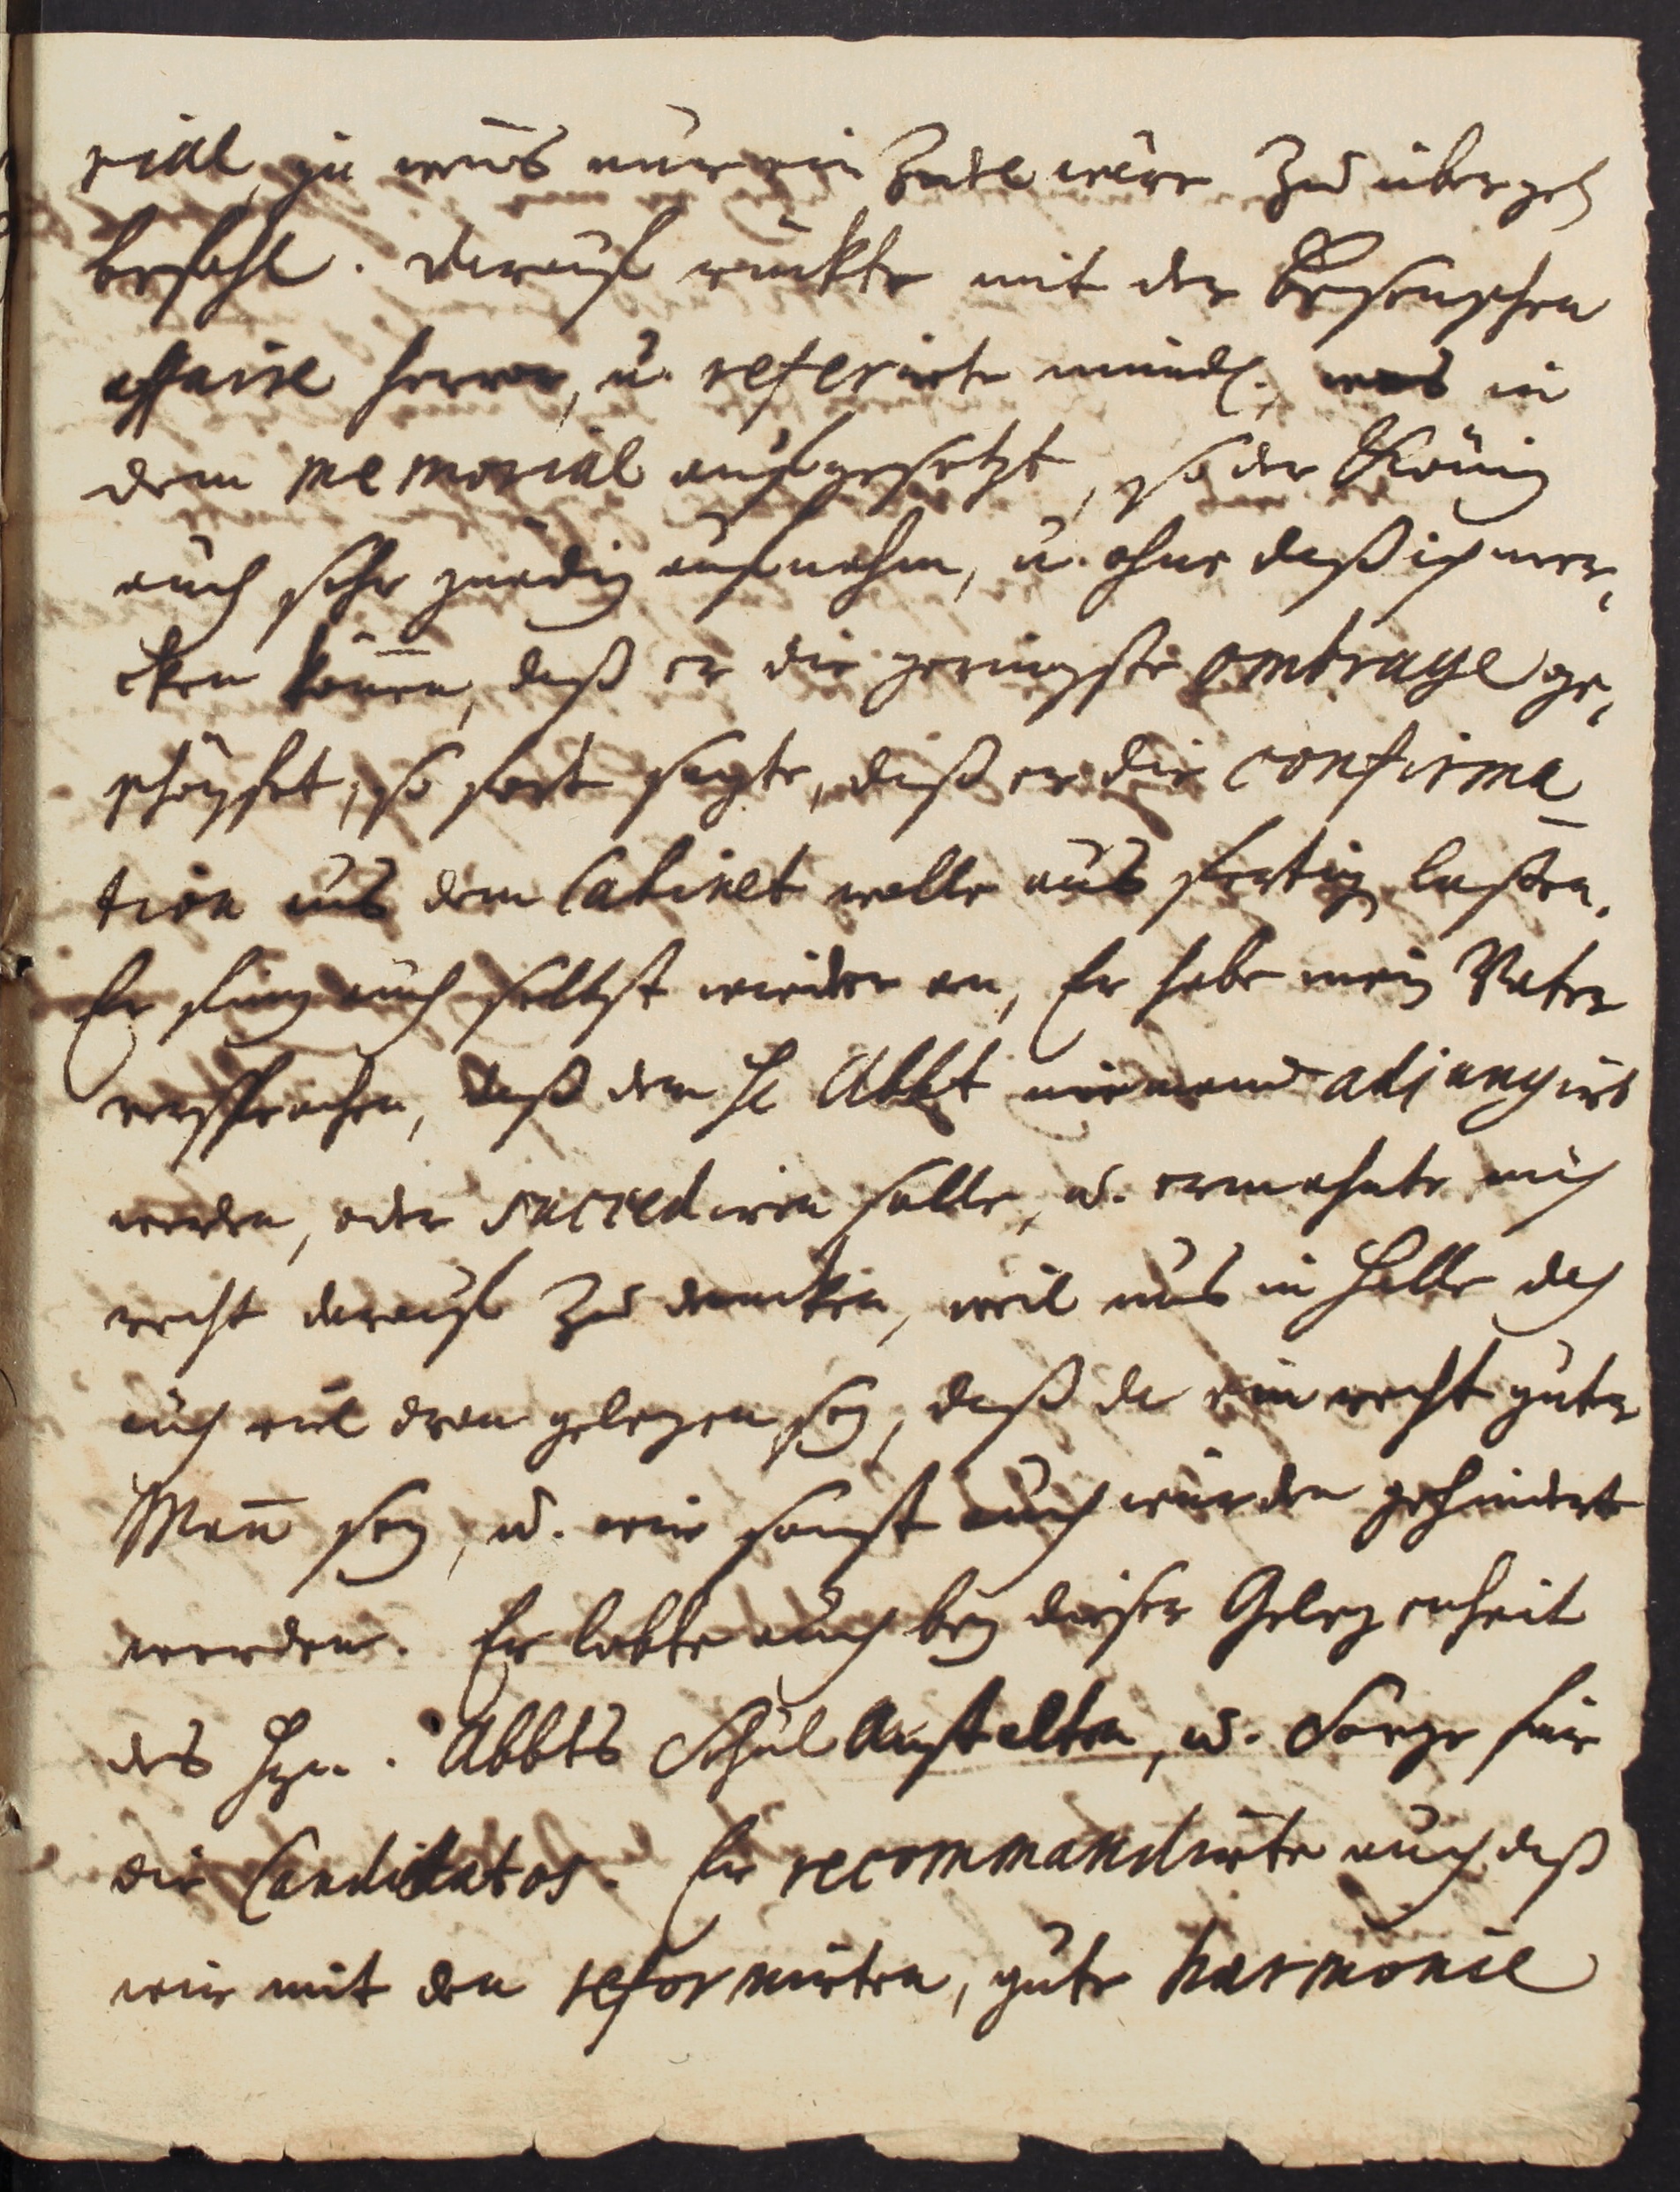 rial, ja wens nur ein Zettel wäre zu übergeb
befahl. Darauf rückte mit der Besenschen
affaire hervor, u. referirte mündl. was in
dem memorial aufgesetzt, so der König
auch sehr gnädig aufnahm, u. ohne daß ich mer,
cken können, daß er die geringste ombrage ge,
schöpfet, so fort sagte, daß er die confirma
tion aus dem Cabinet wolle ausfertig laßen.
Er fing auch selbst wieder an, Er habe mein Vater
versprochen, daß dem H Abbt niemand adjungirt
werden, oder succediren solle, u. ermahnte mich
recht darauf zu dencken, weil uns in Halle doch
auch viel dran gelegen sey, daß da ein recht guter
Mañ sey, u. wir sonst auch würden gehindert
werden. Er lobte auch bey dieser Gelegenheit
des Hrn. Abbts Schul Anstalten, u. Sorge für
die Candidatos. Er recommandirte auch daß
wir mit den reformirten, gute harmonie